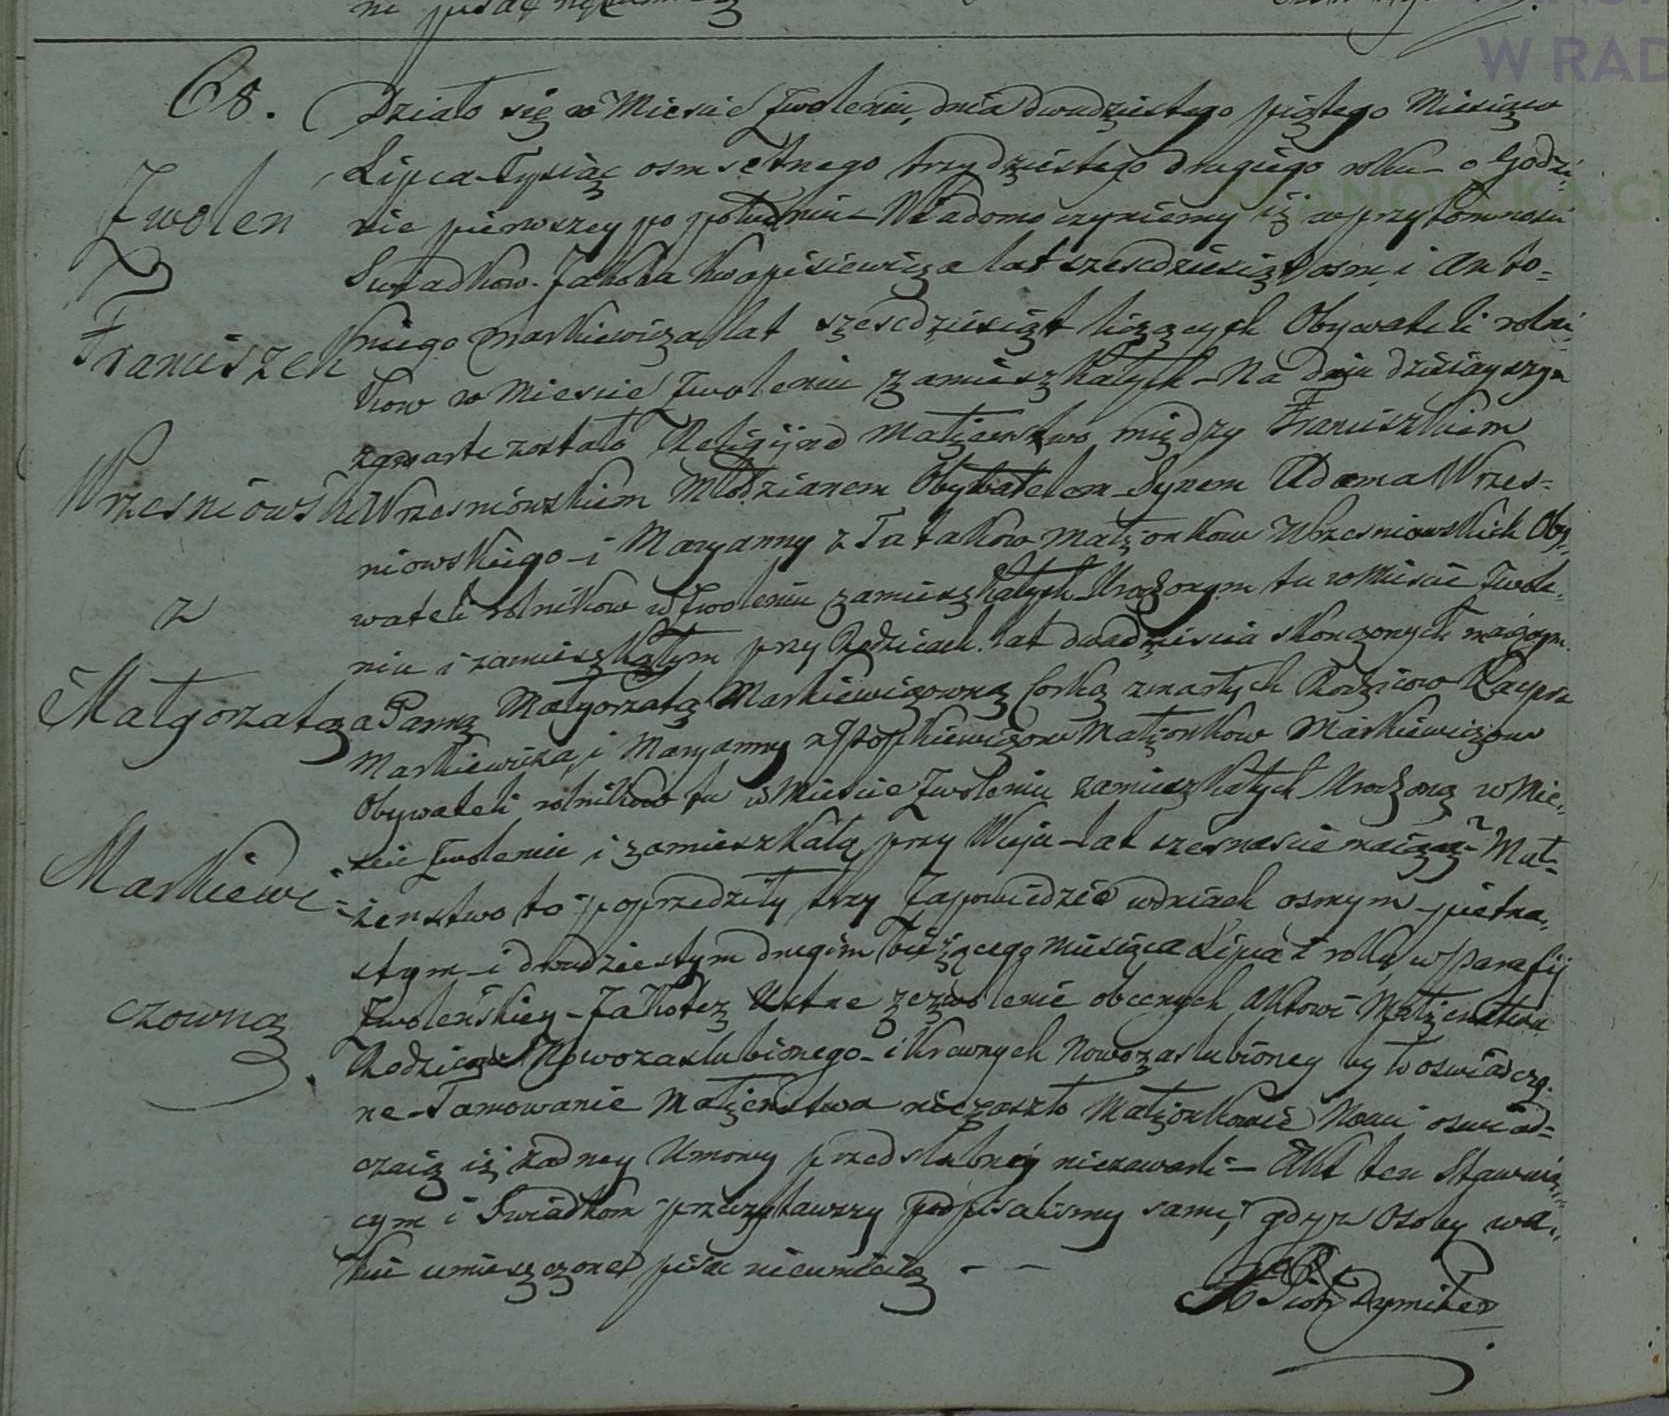 W RAD
68.
Zwolen
Franciszek
Wrzesniowski
z
Małgorzatą
Markiewi-
czowną
Działo się w Miescie Zwoleniu, dnia dwudziestego piątego Miesiąca
Lipca Tysiąc osmsetnego trzydziestego drugiego roku – o Godzi-
nie pierwszey po południu – Wiadomo czyniemy iż w przytomnosci
Swiadkow. Jakóba Kwapisiewicza lat szescdziesiąt osm, i Anto-
niego Markiewicza lat szescdziesiąt liczących Obywateli rolni-
kow w Miescie Zwoleniu zamieszkałych – Na dniu dzisiayszym
zawarte zostało Religijne Małzenstwo między Franciszkiem
Wrzesniowskiem Młodzianem Obywatelem Synem Adama Wrzes-
niowskiego – i Maryanny z Tatakow małzonkow Wrzesniowskich Oby-
wateli rolnikow w Zwoleniu zamieszkałych Urodzonym tu w Miescie Zwole-
niu i zamieszkałym przy Rodzicach lat dwadziescia skonczonych maiącym
a Panną Małgorzatą Markiewiczowną Corką zmarłych Rodzicow Kacpra
Markiewicza, i Maryanny z Małzonkow Markiewiczow
Obywateli rolnikow tu w Miescie Zwoleniu zamieszkałych Urodzoną w Mie-
scie Zwoleniu i zamieszkałą przy Wuju – lat szesnascie maiącą – Mał-
zenstwo to poprzedziły trzy Zapowiedzie w dniach osmym – pietna-
stym – i dwudziestym drugim bieżącego miesiąca Lipca i roku w Parafij
Zwolenskiey – Jakotez Ustne zezwolenie obecnych Aktowi Małzenstwa
Rodzicow Nowozaslubionego – i krewnych Nowozaslubioney było oswiadczo-
ne – Tamowanie Małzenstwa niezaszło Małzonkowie Nowi oswiad-
czaią iż zadney Umowy przedslubney niezawarli – Akt ten Stawaią-
cym i Swiadkom przeczytawszy podpisalismy sami, gdyz Osoby w a-
kcie umieszczone pisac nieumieią – –
X Piotr Dymiter